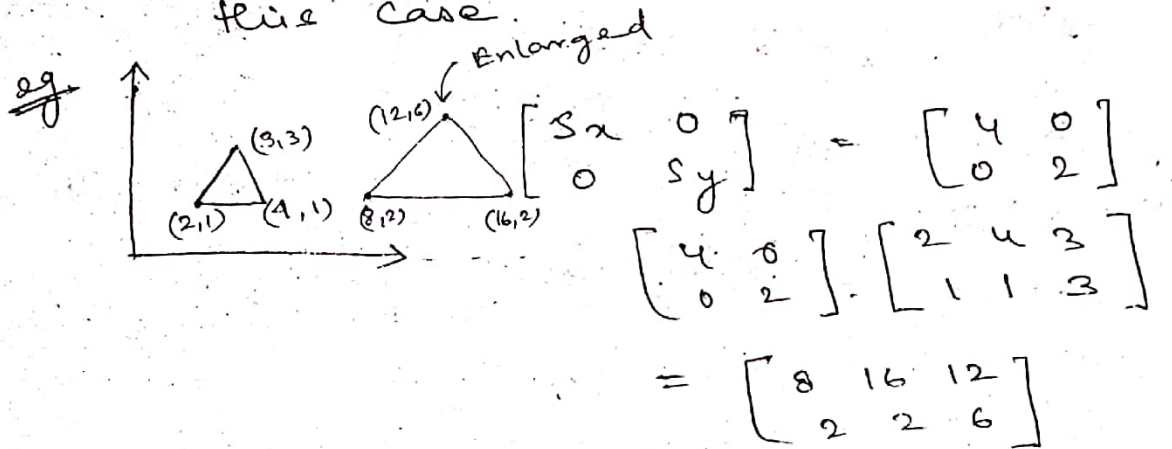 this case.
eg
Enlarged
(12,6)
(3,3)
(2,1) (4,1) (8,2) (16,2)
[Sx 0
0 Sy] = [4 0
0 2].
[4 0
0 2] . [2 4 3
1 1 3]
= [8 16 12
2 2 6]